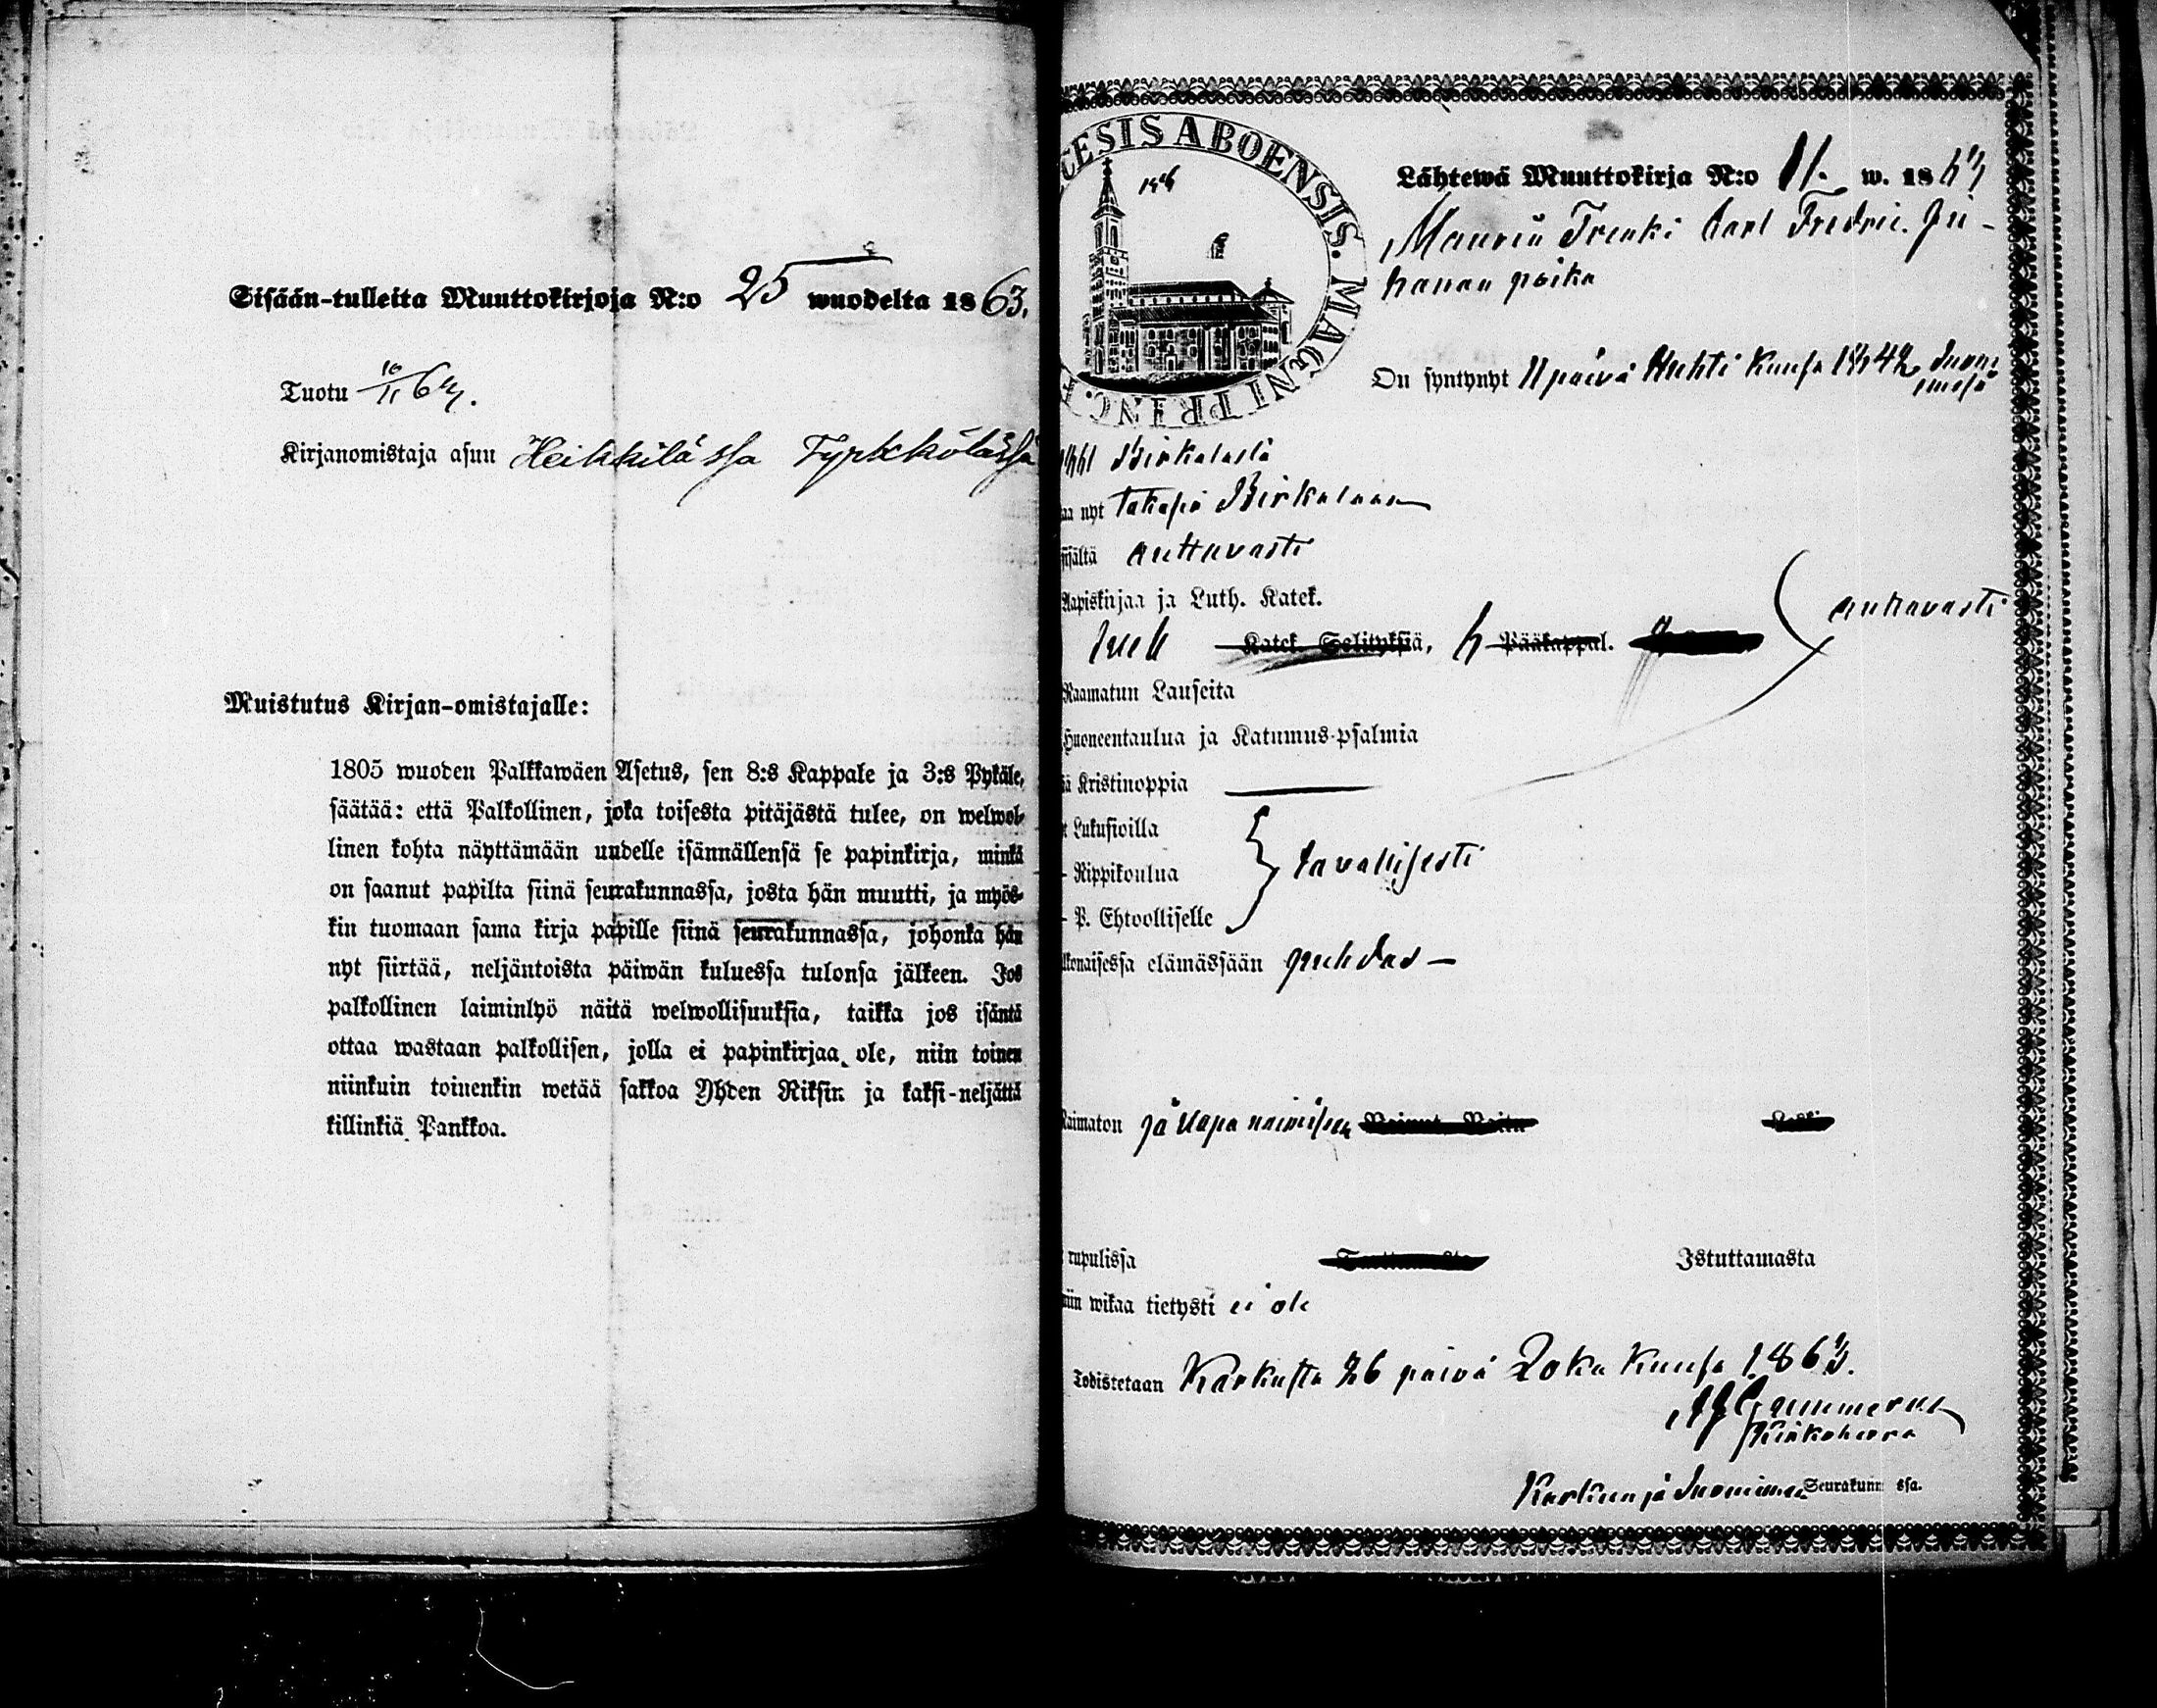 Sisään-tulleita Muuttokirjoja N:o 25 wuodelta 1863.
Tuotu 10/11 63.
Kirjanomistaja asuu Heikkilässa Tyrkkölässä
Muistutus Kirjan-omistajalle:
1805 wuoden Palkkawäen Asetus, sen 8:s Kappale ja 3:s Pykäle,
säätää: että Palkollinen, joka toisesta pitäjästä tulee, on welwol-
linen kohta näyttämään uudelle isännällensä se papinkirja, minkä
on saanut papilta siinä seurakunnassa, josta hän muutti, ja myös-
kin tuomaan sama kirja papille siinä seurakunnassa, johonka hän
nyt siirtää, neljäntoista päiwän kuluessa tulonsa jälkeen. Jos
palkollinen laiminlyö näitä welwollisuuksia, taikka jos isäntä
ottaa wastaan palkollisen, jolla ei papinkirjaa ole, niin toinen
niinkuin toinenkin wetää sakkoa Yhden Riksin ja kaksi-neljättä
killinkiä Pankkoa.
CESIS ABOENSIS. MAGNI PRINC.
Lähtewä Muuttokirja N:o 11. w. 1863
Renki Carl Fredric. Ju-
hanan poika
On syntynyt 11 päivä Huhti Kuusa 1842
Birkalasta
aa nyt takasin Birkalaan
sältä auttavasti
Aapiskirjaa ja Luth. Katek.
Katek. Selityksiä, Pääkappal.
auttavasti
Raamatun Lauseita
Huoneentaulua ja Katumus-psalmia
ä Kristinoppia
Lukusioilla
Rippikoulua
tavallisesti
P. Ehtoolliselle
lkonaisessa elämässään puhdas
Naimaton ja vapa naimiseen
rupulissa Istuttamasta
iin wikaa tietysti ei ole
Todistetaan Karkusta 26 päivä Loka Kuusa 1863.
Gummerus
Kirkoherra
Karkun ja Suoniemen Seurakunnassa.